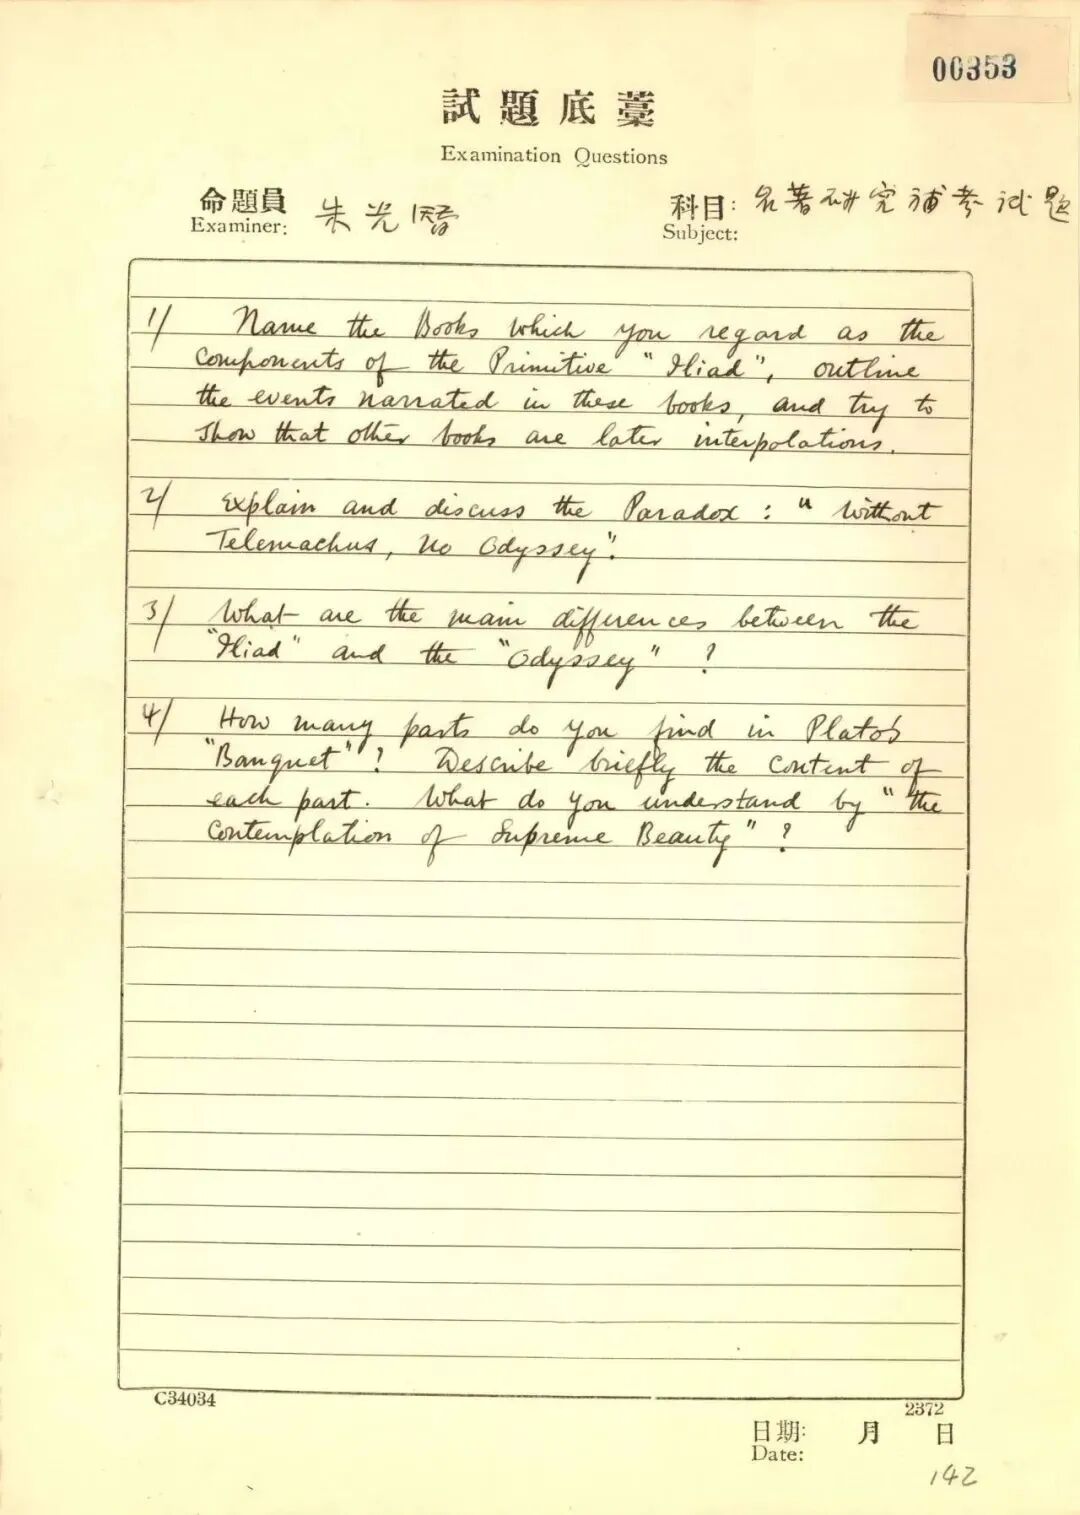 00353
試題底藁
Examination Questions
命題員 朱光潛 科目: 名著研究補考试题
Examiner: Subject:
1/ Name the Books which you regard as the
components of the Primitive "Iliad", outline
the events narrated in these books, and try to
show that other books are later interpolations.
2/ Explain and discuss the Paradox : "Without
Telemachus, no Odyssey".
3/ What are the main differences between the
"Iliad" and the "Odyssey" ?
4/ How many parts do you find in Plato's
"Banquet" ? Describe briefly the content of
each part. What do you understand by "the
contemplation of Supreme Beauty" ?
C34034
2372
日期: 月 日
Date:
142